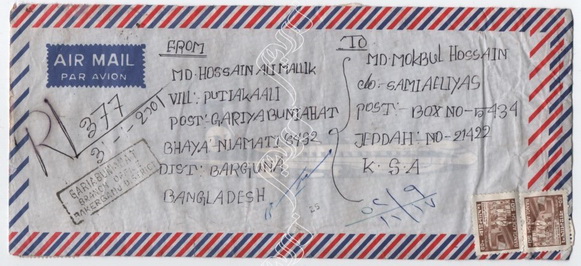 AIR MAIL
PAR AVION
R/ 377
FROM
MD. HOSSAIN ALI MALLIK
VILL: PUTIAKAALI
POST: GARIYABUNIAHAT
BHAYA: NIAMATI
DIST: BARGUNA
BANGLADESH
TO
MD. MOKBUL HOSSAIN
C/O: SAMIAELIYAS
POST: BOX NO-
JEDDAH: NO-21422
K. S. A
GARIABUNIAHAT
BRANCH
BAKERGANJ DISTRICT